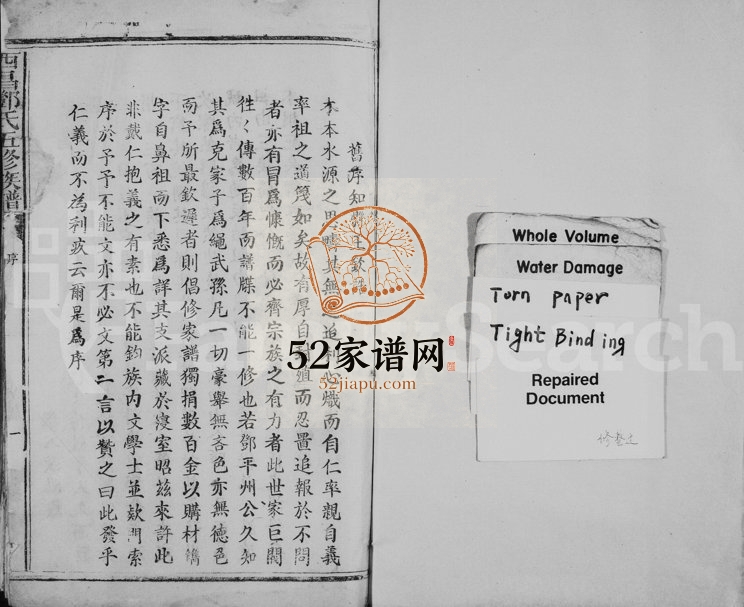 西昌鄧氏五修族譜
序
一
舊序
木本水源之思
而自仁率親自義
率祖之道篾如矣故有厚自
而忍置追報於不問
者亦有冒爲慷慨而必齊宗族之有力者此世家巨閥
徃〱傳數百年而譜牒不能一修也若鄧平州公久知
其爲克家子爲繩武孫凡一切豪舉無吝色亦無德色
而予所最欽遲者則倡修家譜獨捐數百金以購材鐫
字自鼻祖而下悉爲詳其支派藏於寑室昭茲來許此
非戴仁抱義之有素也不能鈞族内文學士並欵門索
序於予予不能文亦不必文第一言以贊之曰此發乎
仁義而不為利故云爾是爲序
52家谱网
52jiapu.com
Whole Volume
Water Damage
Torn paper
Tight Binding
Repaired
Document
Search